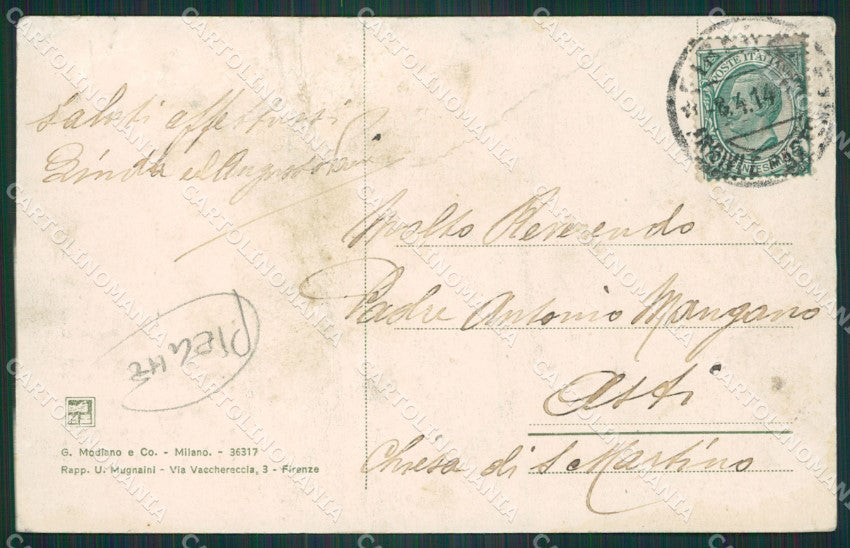 Saluti affettuosi
Linda ed
POSTE ITALIANE
8.4.14
Molto Reverendo
Padre Antonio Mangano
Asti
Chiesa di S Martino
PIEGHE
G. Modiano e Co. - Milano. - 36317
Rapp. U. Mugnaini - Via Vacchereccia, 3 - Firenze
CARTOLINOMANIA